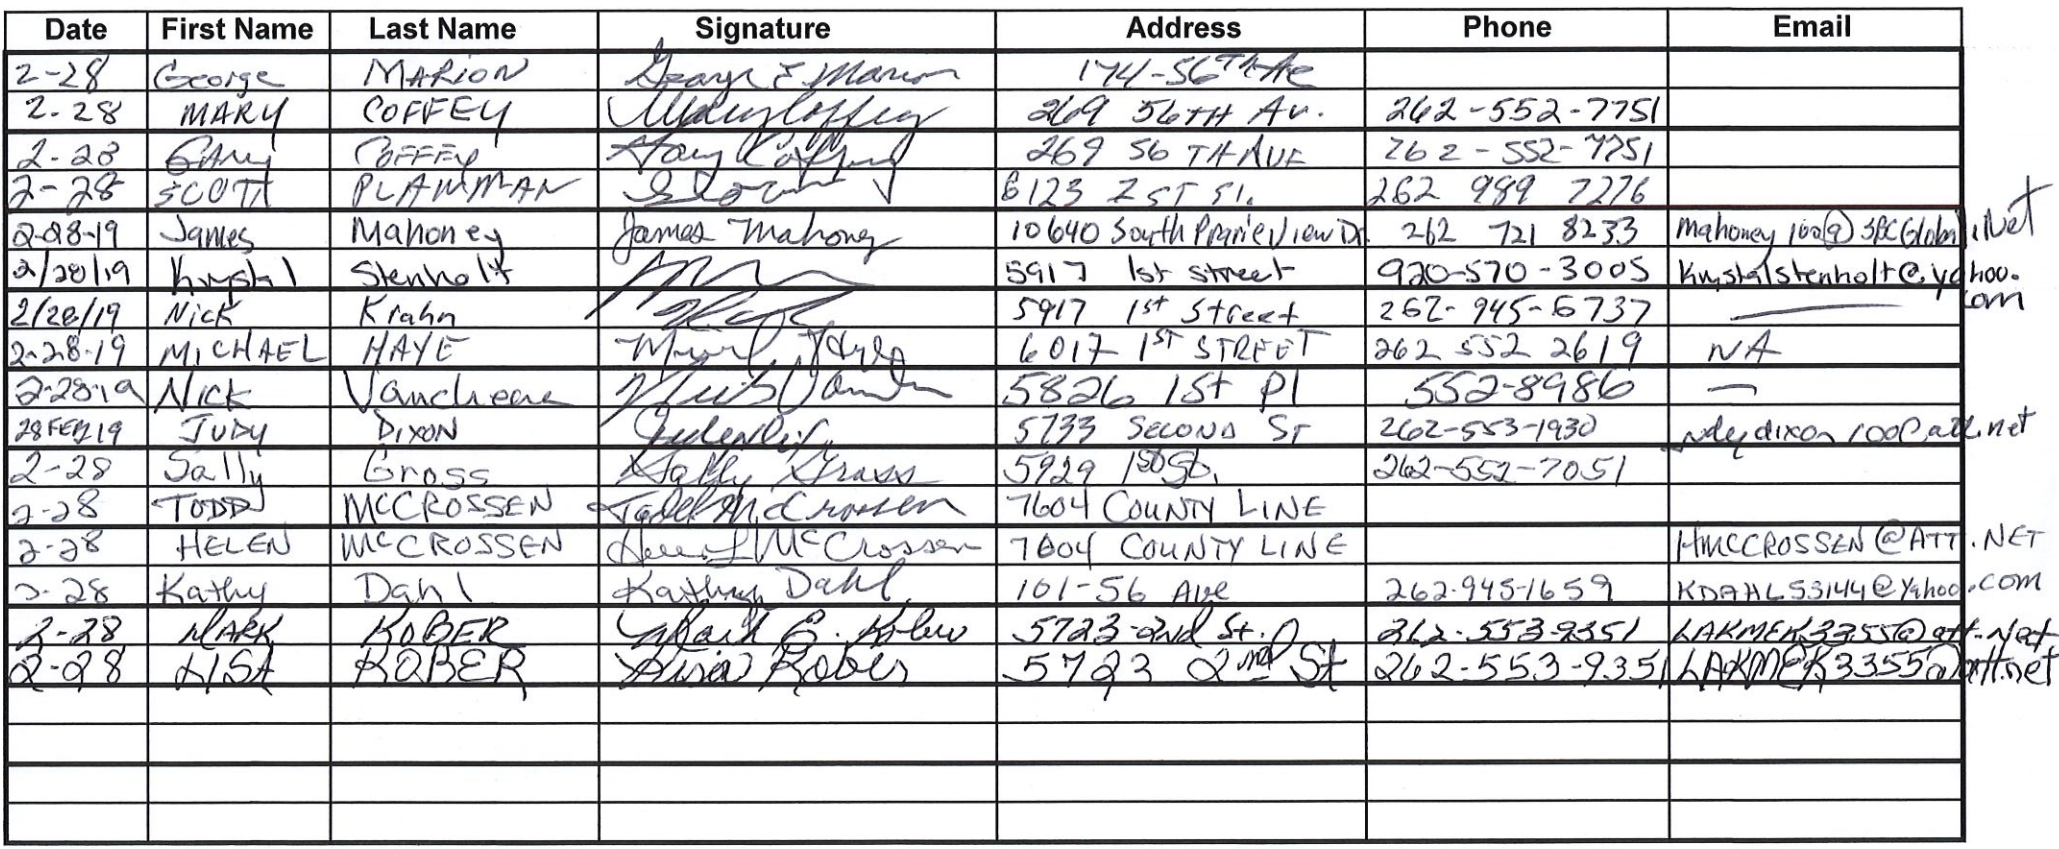 Date First Name Last Name Signature Address Phone Email
2-28 George MARION George E Marion 174-56TH Ave
2-28 MARY COFFEY Mary Coffey 269 56TH Av. 262-552-7751
2-28 GARY COFFEY Gary Coffey 269 56 TH AVE 262-552-7751
2-28 SCOTT PLAMMAN 6123 1ST St. 262 989 7276
2-28-19 James Mahoney James Mahoney 10640 South Prairie View Dr. 262 721 8233 Mahoney 100@SBCGlobal.Net
2/28/19 Krystal Stenholt 5917 1st street 920-570-3005 Krystalstenholt@yahoo.
com
2/28/19 Nick Krahn 5917 1st Street 262-945-6737 —
2-28-19 MICHAEL HAYE 6017 1ST STREET 262 552 2619 NA
2-28-19 Nick 5826 1st Pl 552-8986 —
28FEB19 JUDY DIXON 5733 SECOND ST 262-553-1930
2-28 Sally Gross Sally Gross 5929 1st St. 262-552-7051
2-28 TODD MCCROSSEN Todd McCrossen 7604 COUNTY LINE
2-28 HELEN MCCROSSEN Helen McCrossen 7604 COUNTY LINE HMCCROSSEN@ATT.NET
2-28 Kathy Dahl Kathryn Dahl 101-56 Ave 262-945-1659 KDAHL53144@Yahoo.com
2-28 MARK KOBER Mark E. Kober 5723-2nd St. 262-553-9351 LAKMEK3355@att.net
2-28 LISA KOBER Lisa Kober 5723 2nd St 262-553-9351 LAKMEK3355@att.net